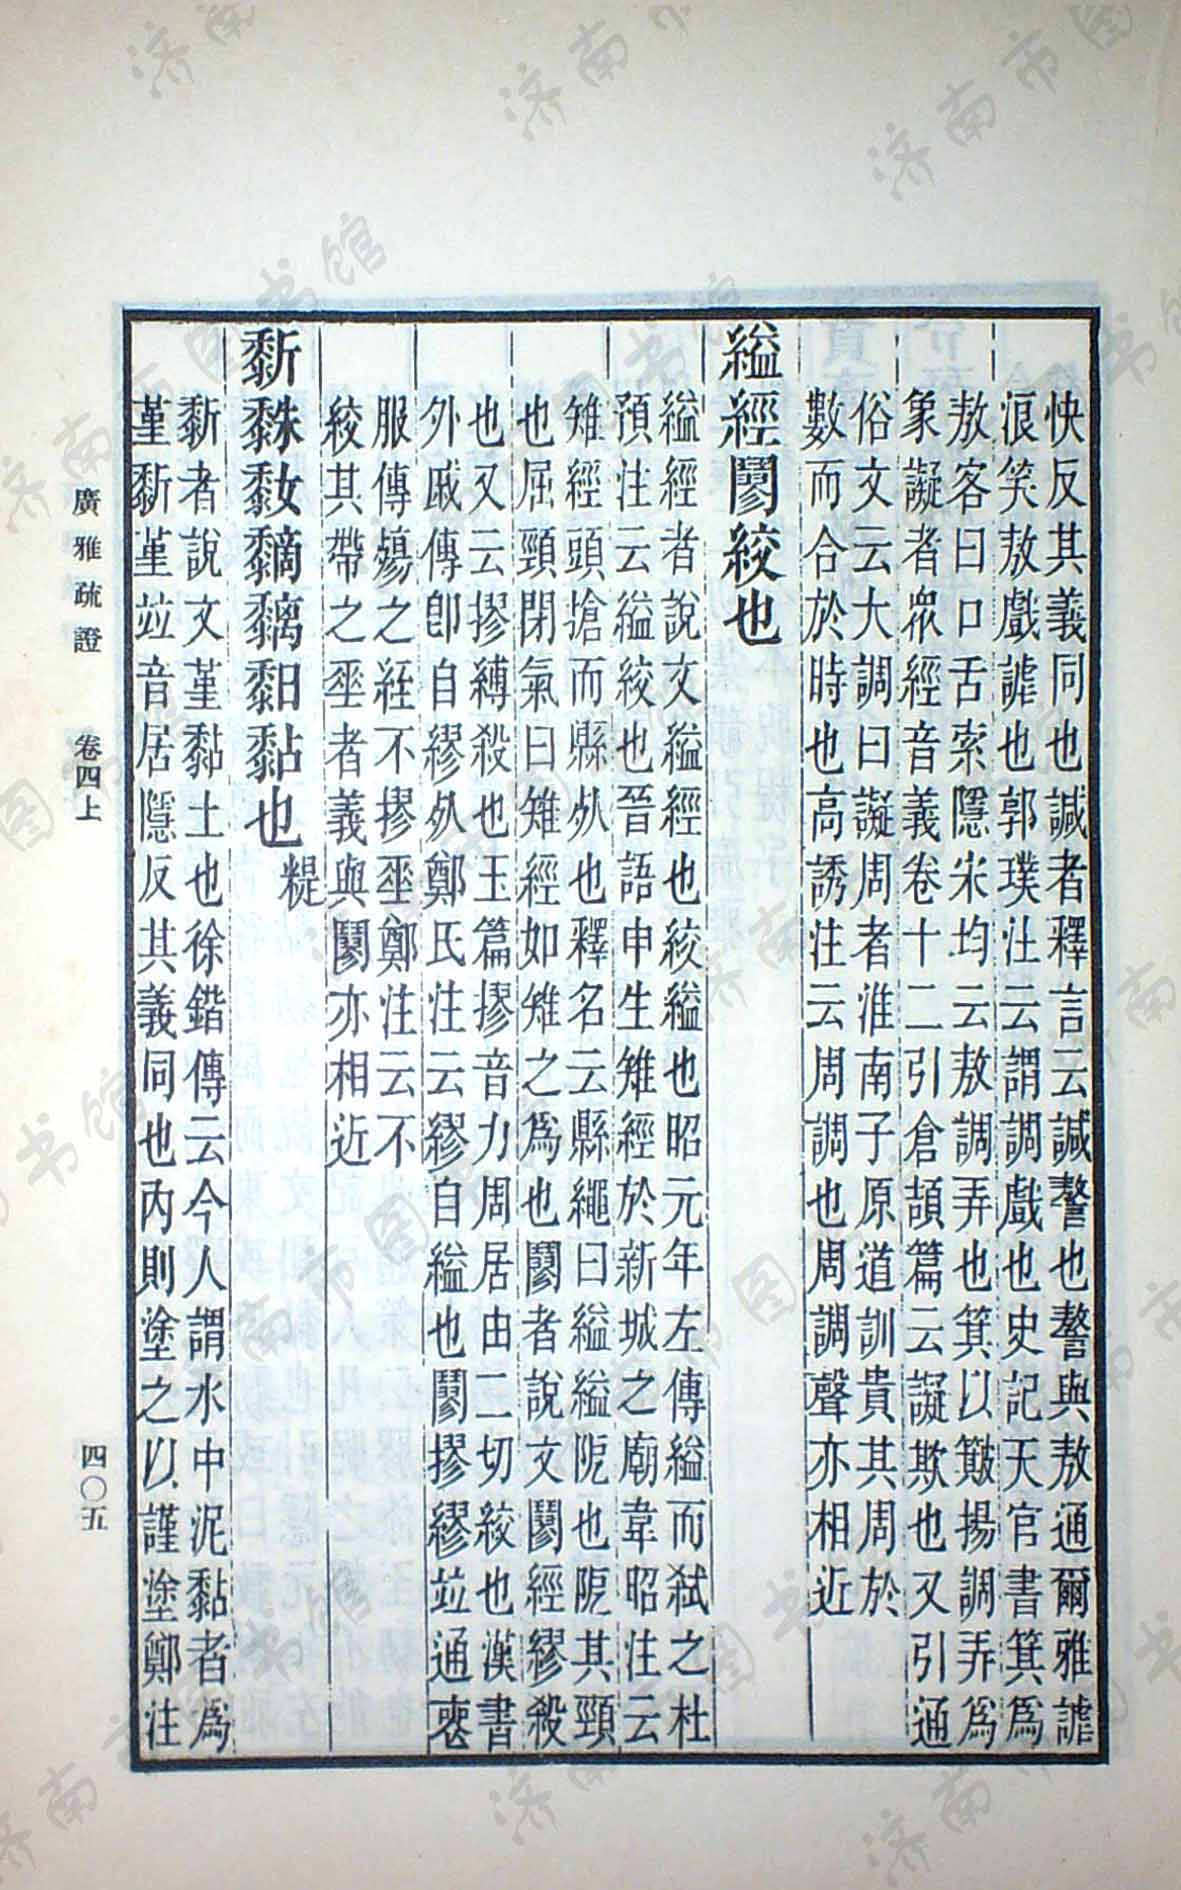 快反其義同也諴者釋言云諴謷也謷與敖通爾雅謔
浪笑敖戲謔也郭璞注云謂調戲也史記天官書箕爲
敖客曰口舌索隱宋均云敖調弄也箕以簸揚調弄爲
象譺者眾經音義卷十二引倉頡篇云譺欺也又引通
俗文云大調曰譺周者淮南子原道訓貴其周於
數而合於時也高誘注云周調也周調聲亦相近
縊經鬫絞也
縊經者說文縊經也絞縊也昭元年左傳縊而弒之杜
預注云縊絞也晉語申生雉經於新城之廟韋昭注云
雉經頭搶而縣死也釋名云縣繩曰縊縊阨也阨其頸
也屈頸閉氣曰雉經如雉之爲也鬫者說文鬫經繆殺
也又云摎縛殺也玉篇摎音力周居由二切絞也漢書
外戚傳卽自繆死鄭氏注云繆自縊也鬫摎繆竝通喪
服傳殤之絰不摎垂鄭注云不
絞其帶之垂者義與鬫亦相近
䵑黏也 䊓
䵑者說文堇黏土也徐鍇傳云今人謂水中泥黏者爲
堇䵑堇竝音居隱反其義同也內則塗之以謹塗鄭注
廣雅疏證 卷四上 四〇五